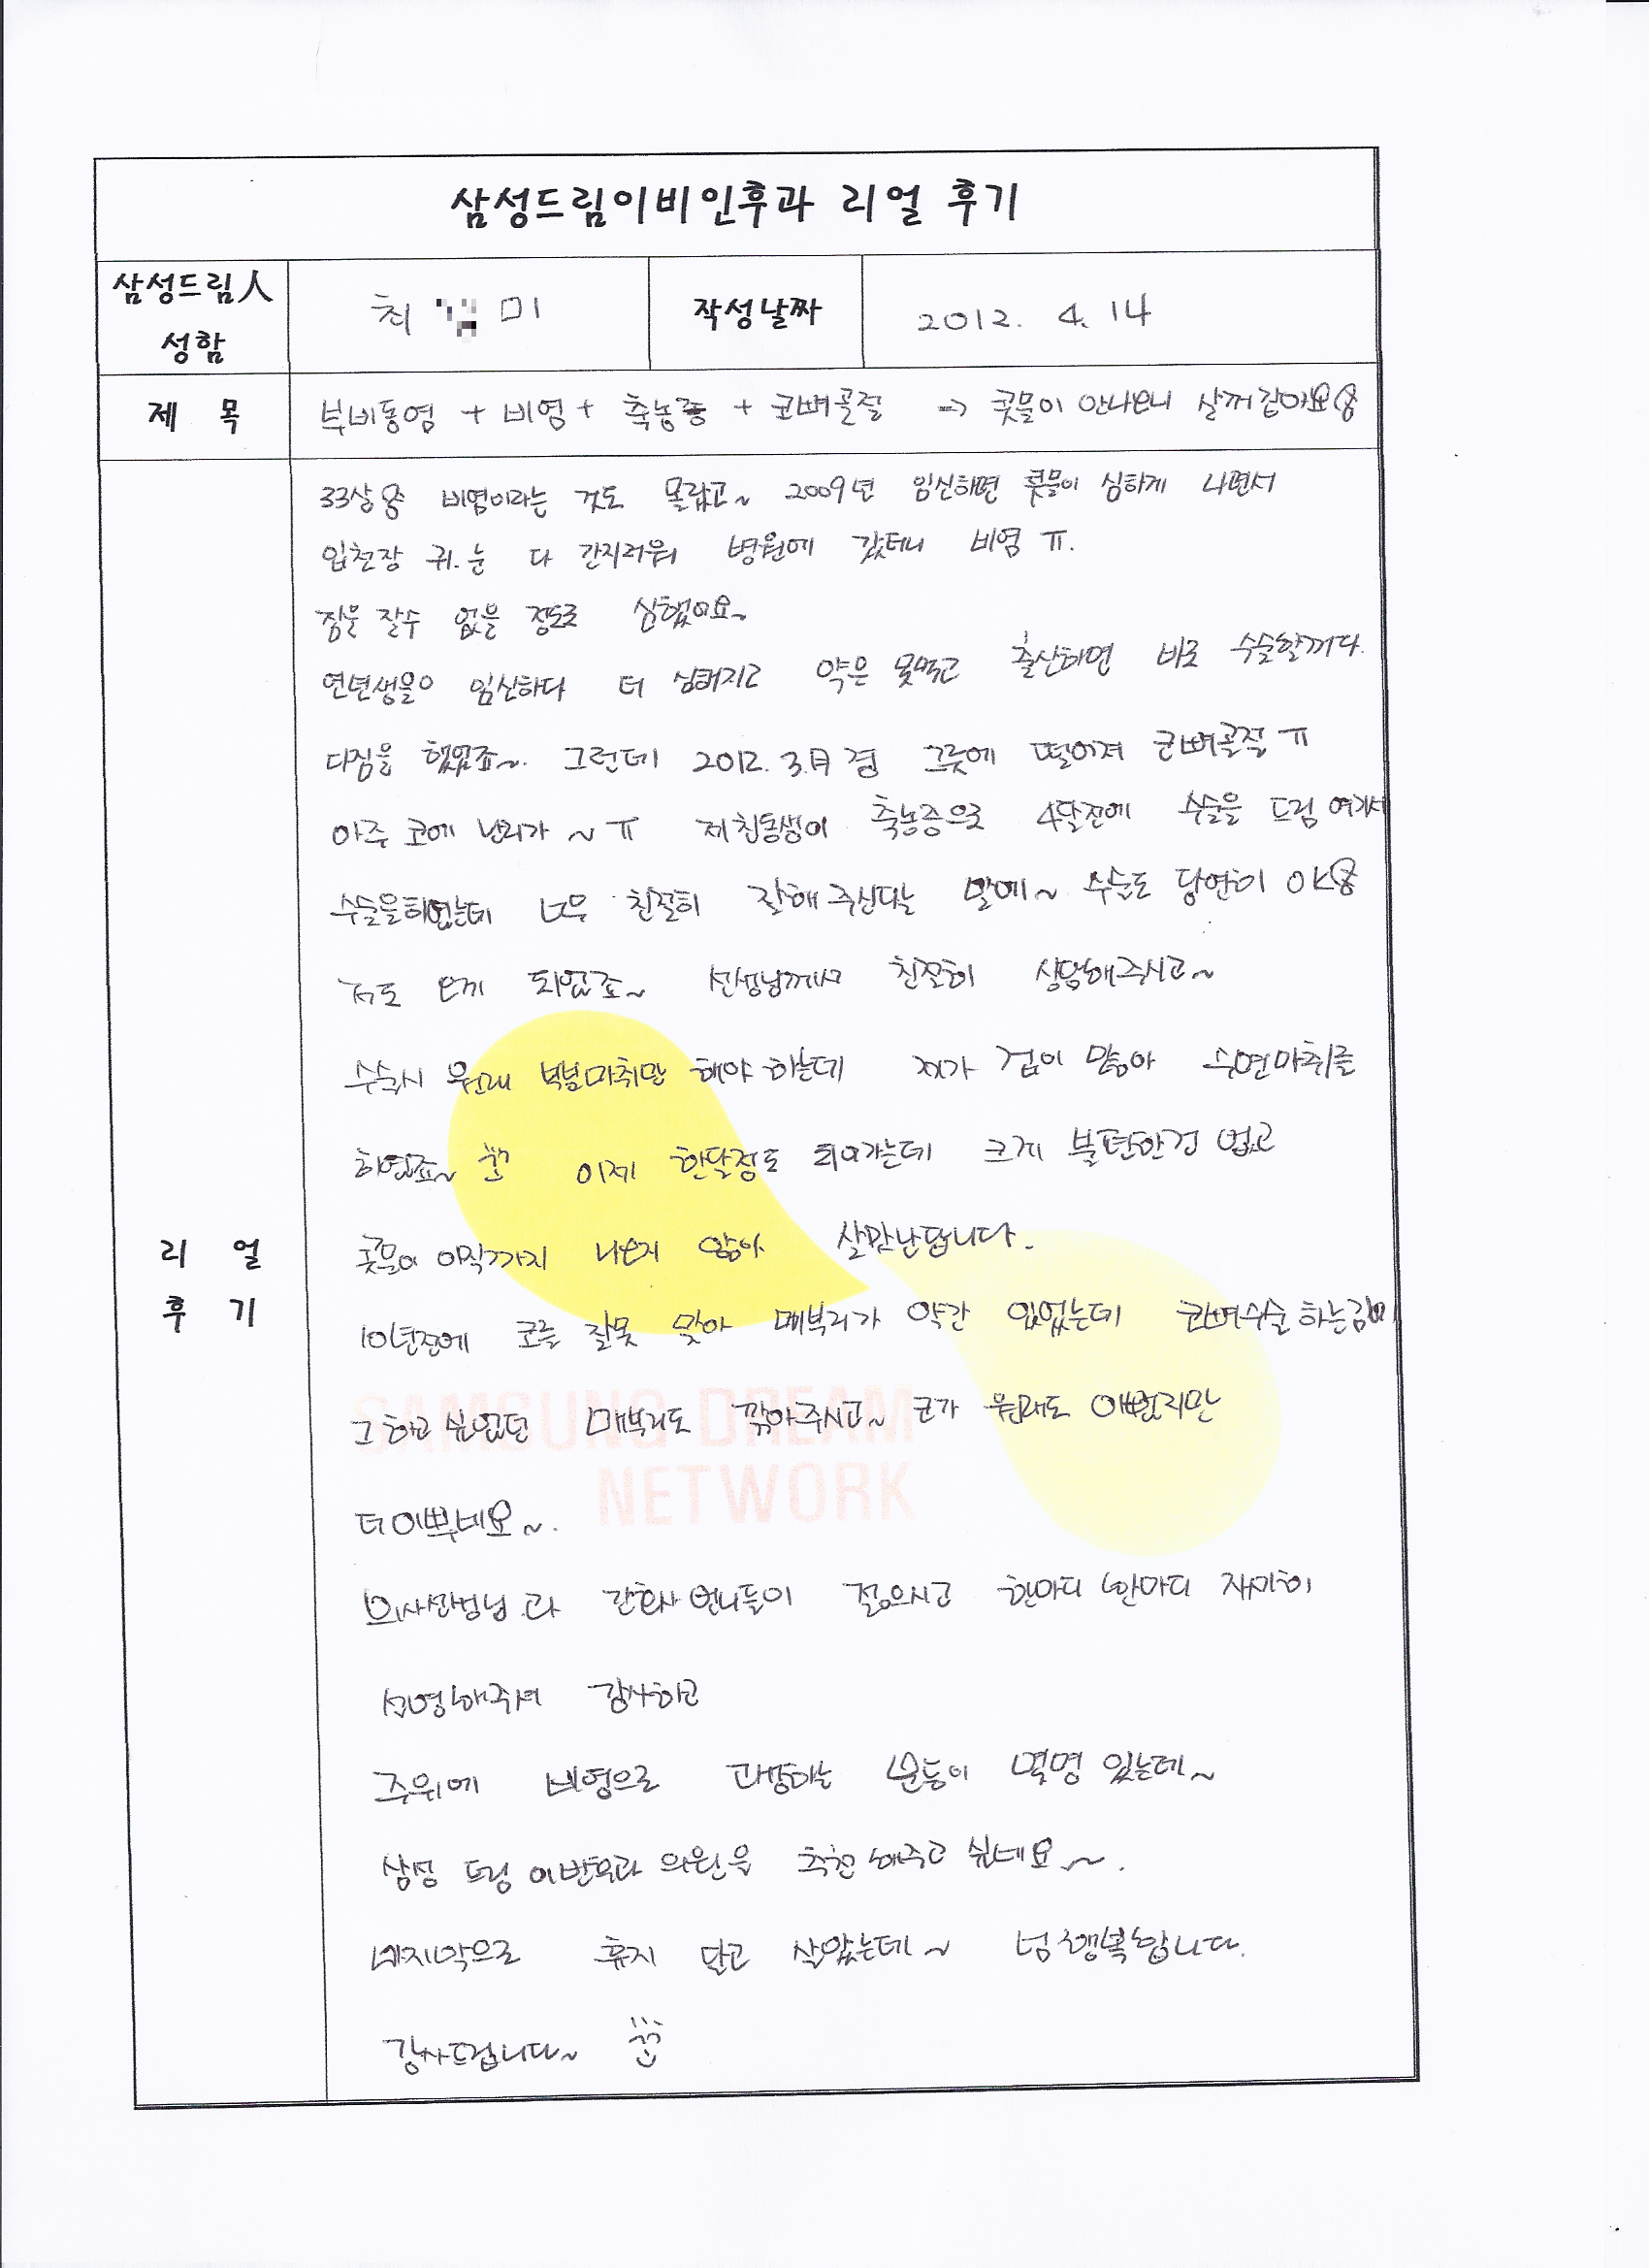 삼성드림이비인후과 리얼 후기
삼성드림人
성함
최 미
작성날짜
2012. 4. 14
제 목
부비동염 + 비염 + 축농증 + 코뼈골절 → 콧물이 안나오니 살꺼같아요용
33살용 비염이라는 것도 몰랐고~ 2009년 임신하면 콧물이 심하게 나면서
입천장 귀.눈 다 간지러워 병원에 갔더니 비염 ㅠ.
잠을 잘수 없을 정도로 심했어요~
연년생을 임신하다 더 심해지고 약은 못먹고 출산하면 바로 수술할꺼다.
다짐을 했었죠~. 그런데 2012. 3.月경 그릇에 떨어져 코뼈골절 ㅠ
아주 코에 난리가 ~ ㅠ 제 친동생이 축농증으로 4달전에 수술을 드림 여기서
수술을하였는데 너무 친절히 잘해주신다는 말에~ 수술도 당연히 OK용
저도 오게 되었죠~ 선생님께서 친절히 상담해주시고~
수술시 원래 부분마취만 해야 하는데 제가 겁이 많아 수면마취를
하였죠~ 이제 한달정도 되어가는데 크게 불편한건 없고
콧물이 아직까지 나오지 않아 살만난답니다.
10년전에 코를 잘못 맞아 메부리가 약간 있었는데 코뼈수술 하는김에
그 하고 싶었던 메부리도 깎아주시고~ 코가 원래도 이뻤지만
더 이뿌네요~.
의사선생님과 간호사 언니들이 젊으시고 한마디 한마디 자세히
설명해주셔 감사하고
주위에 비염으로 고생하는 분들이 몇명 있는데~
삼성 드림 이비인후과 의원을 추천 해주고 싶네요~.
마지막으로 휴지 달고 살았는데~ 넘 행복합니다.
감사드립니다~
SAMSUNG DREAM
NETWORK